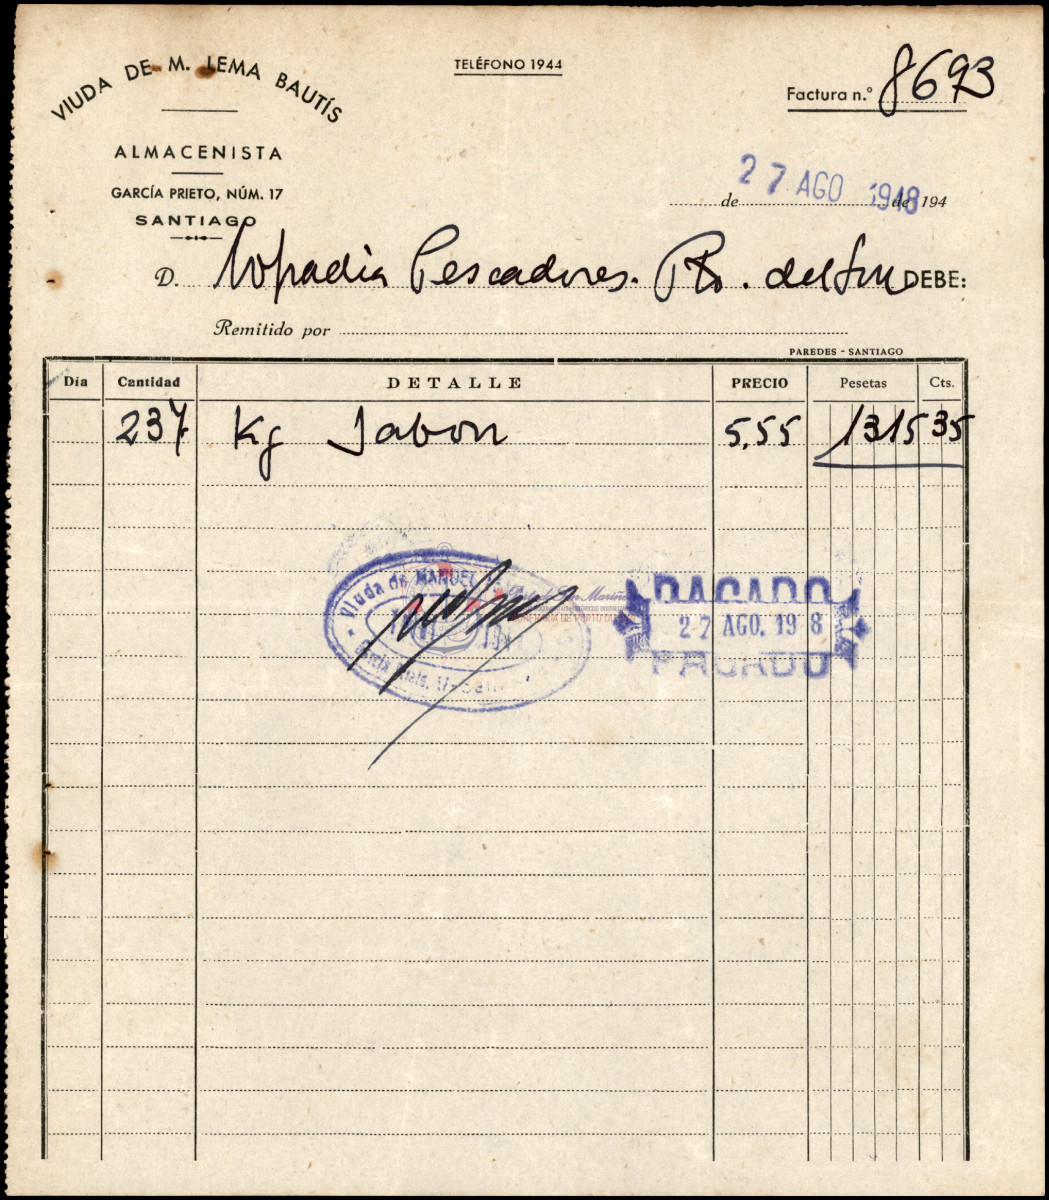 VIUDA DE M. LEMA BAUTÍS
TELÉFONO 1944
Factura n.º 8693
ALMACENISTA
GARCÍA PRIETO, NÚM. 17
SANTIAGO
27 AGO 1948
de de 194
D. Cofradia Pescadores. Pto. del Son DEBE:
Remitido por
PAREDES - SANTIAGO
Día Cantidad DETALLE PRECIO Pesetas Cts.
237 Kg Jabon 5,55 1315 35
Viuda de MANUEL
PAGADO
27 AGO. 19 8
PAGADO